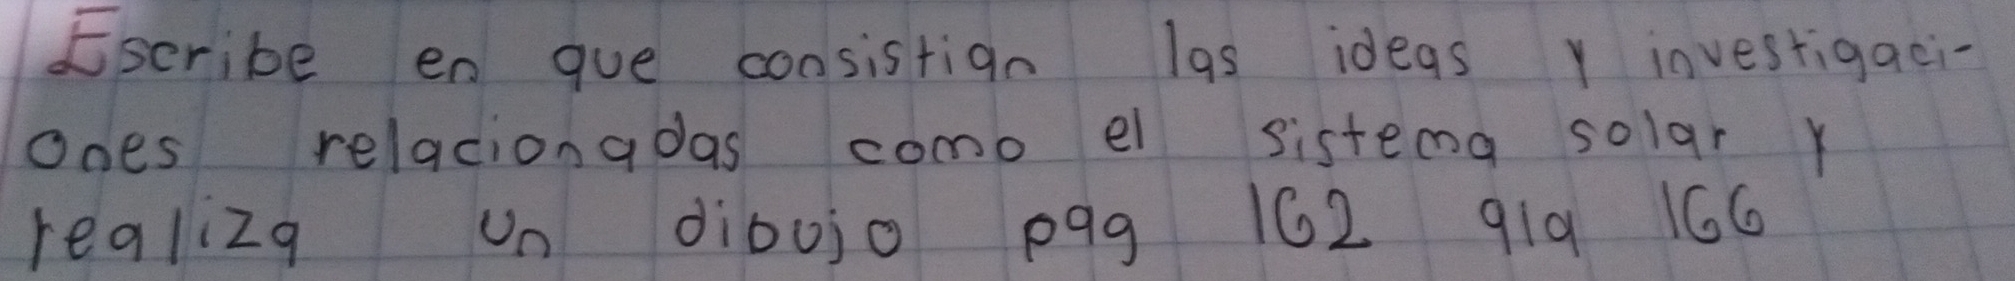 Escribe en que consistian las ideas y investigaci-
ones relacionadas como el sistema solar y
realiza un dibujo pag 162 ala 166